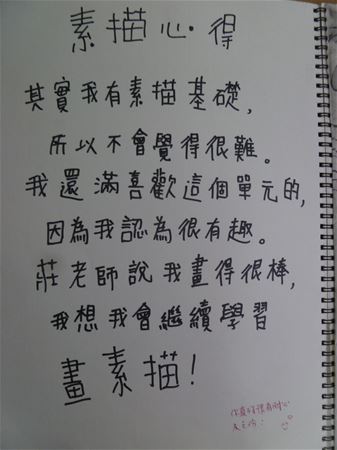 素描心得
其實我有素描基礎,
所以不會覺得很難。
我還滿喜歡這個單元的,
因為我認為很有趣。
莊老師說我畫得很棒,
我想我會繼續學習
畫素描!
你真的很有耐心